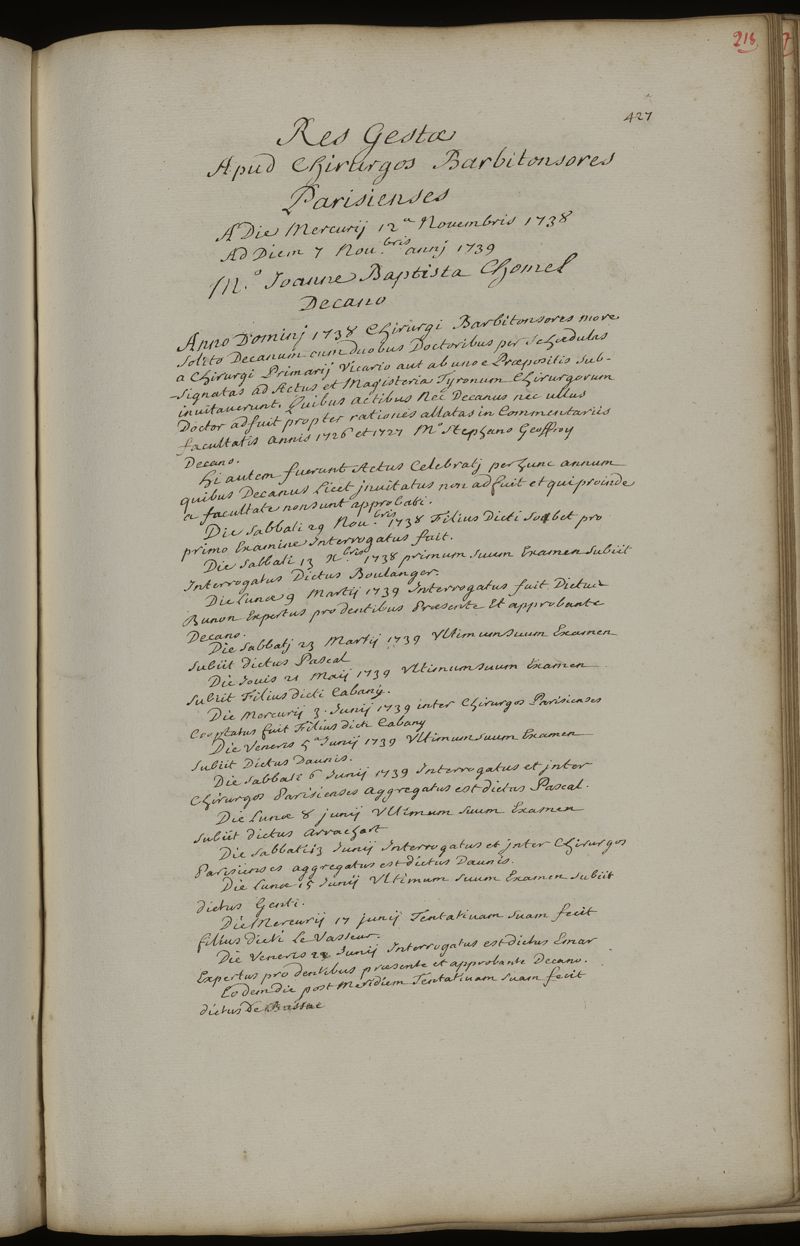 218
427
Res Gestæ
Apud Chirurgos Barbitonsores
Parisienses
A Die Mercurij 12ª Novembris 1738
Ad Diem 7 Nou.bris annj 1739
M.º Joanne Baptista Chomel
Decano
Anno Dominj 1738 Chirurgi Barbitonsores more
solito Decanum cum duobus Doctoribus per Schædulas
a Chirurgi Primarij Vicario aut ab uno e Præpositis Sub-
-Signatas ad Actus et Magisteria Tyronum Chirurgorum
invitaverunt. Quibus actibus Nec Decanus nec ullus
Doctor adfuit propter rationes allatas in Commentariis
facultatis annis 1726 et 1727 Mº Stephano Geoffroy
Decano.
Hi autem fuerunt Actus Celebratj per hunc annum
quibus Decanus licet jnvitatus non adfuit et qui proinde
a facultate non sunt approbati.
Die Sabbati 29 Nou.bris 1738 Filius Dicti Sorbet pro
primo Examine Interrogatus fuit.
Die Sabbati 13 Xbris 1738 primum suum Examen Subiit
Interrogatus Dictus Boulanger.
Die Lunæ 9 Martij 1739 Interrogatus fuit Dictus
Bunon Expertus pro dentibus Præsente Et approbante
Decano.
Die Sabbatj 23 Martij 1739 Ultimum Suum Examen
Subiit dictus Pascal
Die Jovis 21 Maij 1739 Ultimum Suum Examen
Subiit Filius dicti Cabany.
Die Mercurij 3. Junij 1739 inter Chirurgos Parisienses
Cooptatus fuit Filius dicti Cabany
Die Veneris 5ª Junij 1739 Ultimum Suum Examen
Subiit Dictus Daunis.
Die Sabbati 6 Junij 1739 Interrogatus et jnter
Chirurgos Parisienses aggregatus est dictus Pascal.
Die Lunæ 8 junij Ultimum Suum Examen
Subiit dictus Arrachart
Die Sabbati 13 Junij Interrogatus et jnter Chirurgos
Parisienses aggregatus est dictus Daunis.
Die Lunæ 15 Junij Ultimum Suum Examen Subiit
dictus Genti.
Die Mercurij 17 junij Tentativam suam fecit
filius dicti Le Vasseur.
Die Veneris Junij Interrogatus est dictus Emar
Expertus pro dentibus præsente et approbante Decano.
Eodem die post Meridiem Tentativam suam fecit
dictus De